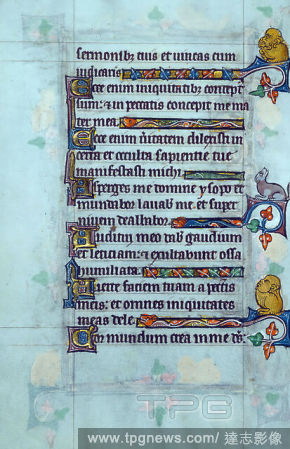 sermonibꝫ tuis et vincas cum
iudicaris
Ecce enim iniquitatibꝫ concept
sum: ⁊ in peccatis concepit me ma
ter mea.
Ecce enim ueritatem dilexisti in
certa et occulta sapientie tue
manifestasti michi.
Asperges me domine ysopo et
mundabor lauab me et super
niuem dealbabor.
Auditui meo dab gaudium
et leticiam: ⁊ exultabunt ossa
humiliata.
Auerte faciem tuam a pctis
meis: et omnes iniquitates
meas dele.
Cor mundum crea in me ds:
TPG
www.tpgnews.com/ 達志影像